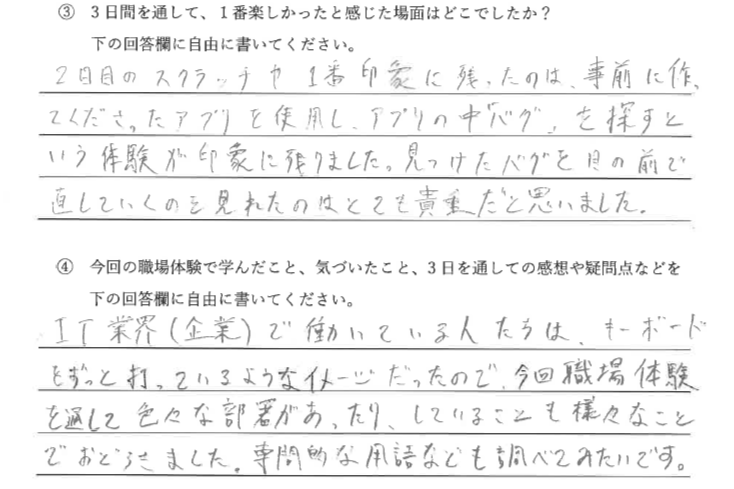 ③ 3日間を通して、1番楽しかったと感じた場面はどこでしたか？
下の回答欄に自由に書いてください。
2日目のスクラッチや1番印象に残ったのは、事前に作っ
てくださったアプリを使用し、アプリの中「バグ」を探すと
いう体験が印象に残りました。見つけたバグを目の前で
直していくのを見れたのはとても貴重だと思いました。
④ 今回の職場体験で学んだこと、気づいたこと、3日を通しての感想や疑問点などを
下の回答欄に自由に書いてください。
IT業界(企業)で働いている人たちは、キーボード
をずっと打っているようなイメージだったので、今回職場体験
を通して色々な部署があったり、していることも様々なこと
でおどろきました。専門的な用語なども調べてみたいです。